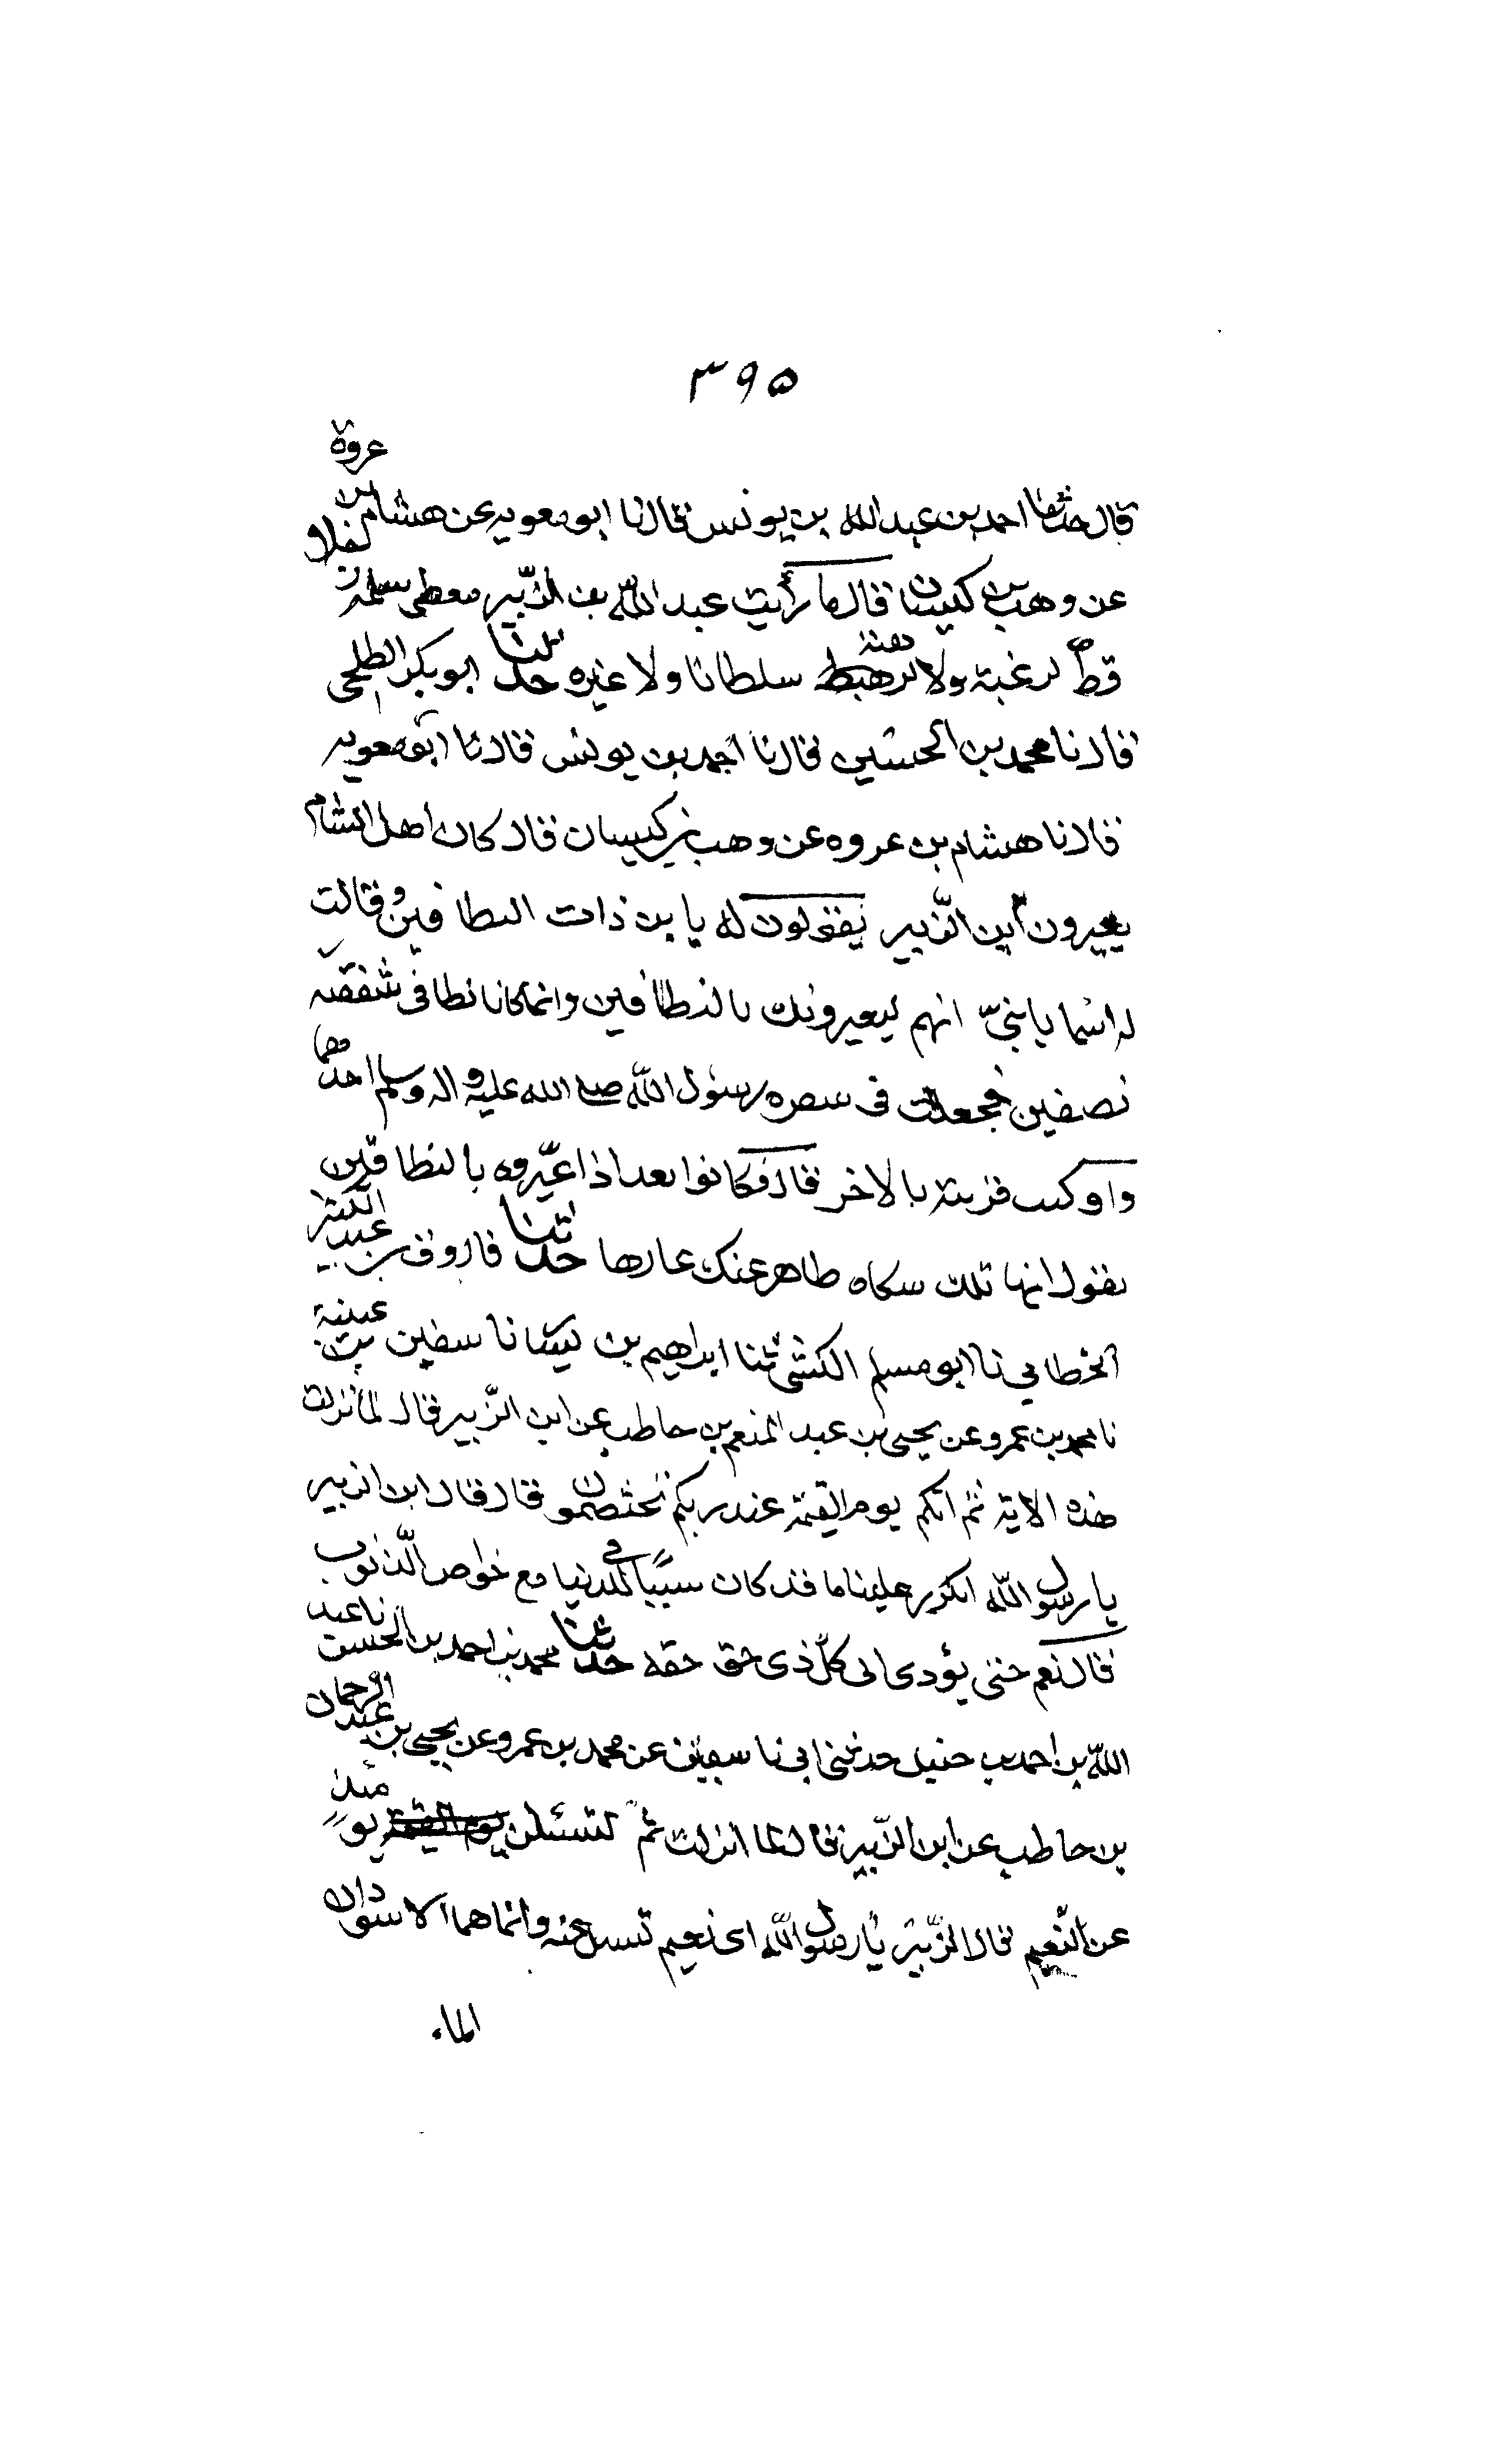 ٣٩٥
قال حدثنا احمد بن عبد الله بن يونس قال نا ابو معويه عن هشام بن عروة
عن وهب بن كيسان قال ما رأيت عبد الله بن الزبير معطى سلمه
قط لرغبة ولا لرهبة سلطانا ولا غيره حدثنا ابو بكر الطلحى
قال نا محمد بن الحسين قال نا احمد بن يونس قال نا ابو معويه
قال نا هشام بن عروه عن وهب بن كيسان قال كان اهل الشام
يعيرون ابن الزبير يقولون له يا بن ذات النطاقين وقالت
له اسما يا بنىّ انهم ليعيرونك بالنطاقين وانما كانا نطاقى شققته
نصفين فجعلت فى سفره رسول الله صلى الله عليه واله وسلم احدهما
واوكت قربته بالاخر قال فكانوا بعد اذا عيّروه بالنطاقين
يقول انها تلك سكاه ظاهر عنك عارها حدثنا فاروق بن عبد الكبير
الخطابي نا ابو مسلم الكشى ثنا ابراهيم بن نا سفين بن عيينة
نا محمد بن عمرو عن يحيى بن عبد المنعم بن حاطب عن ابن الزّبير قال لما نزلت
هذه الاية ثم انكم يوم القيمة عند ربكم تختصمون قال قال ابن الزبير
يا رسول الله ايكرر علينا ما قد كان سببا فى الدنيا مع خواص الذّنوب
قال نعم حتى يؤدى الى كلّ ذى حق حقه حدثنا محمد بن احمد بن الحسن نا عبد
الله بن احمد بن حنبل حدثنى ابى نا سفين عن محمد بن عمرو عن يحيى بن عبد الرحمان
بن حاطب عن ابن الزّبير قال لما انزلت ثم لتسئلن يوم القيمة يومئذ
عن النّعيم قال الزّبير يا رسول الله اى نعيم تسل عنه وانما هما الاسودان
الماء